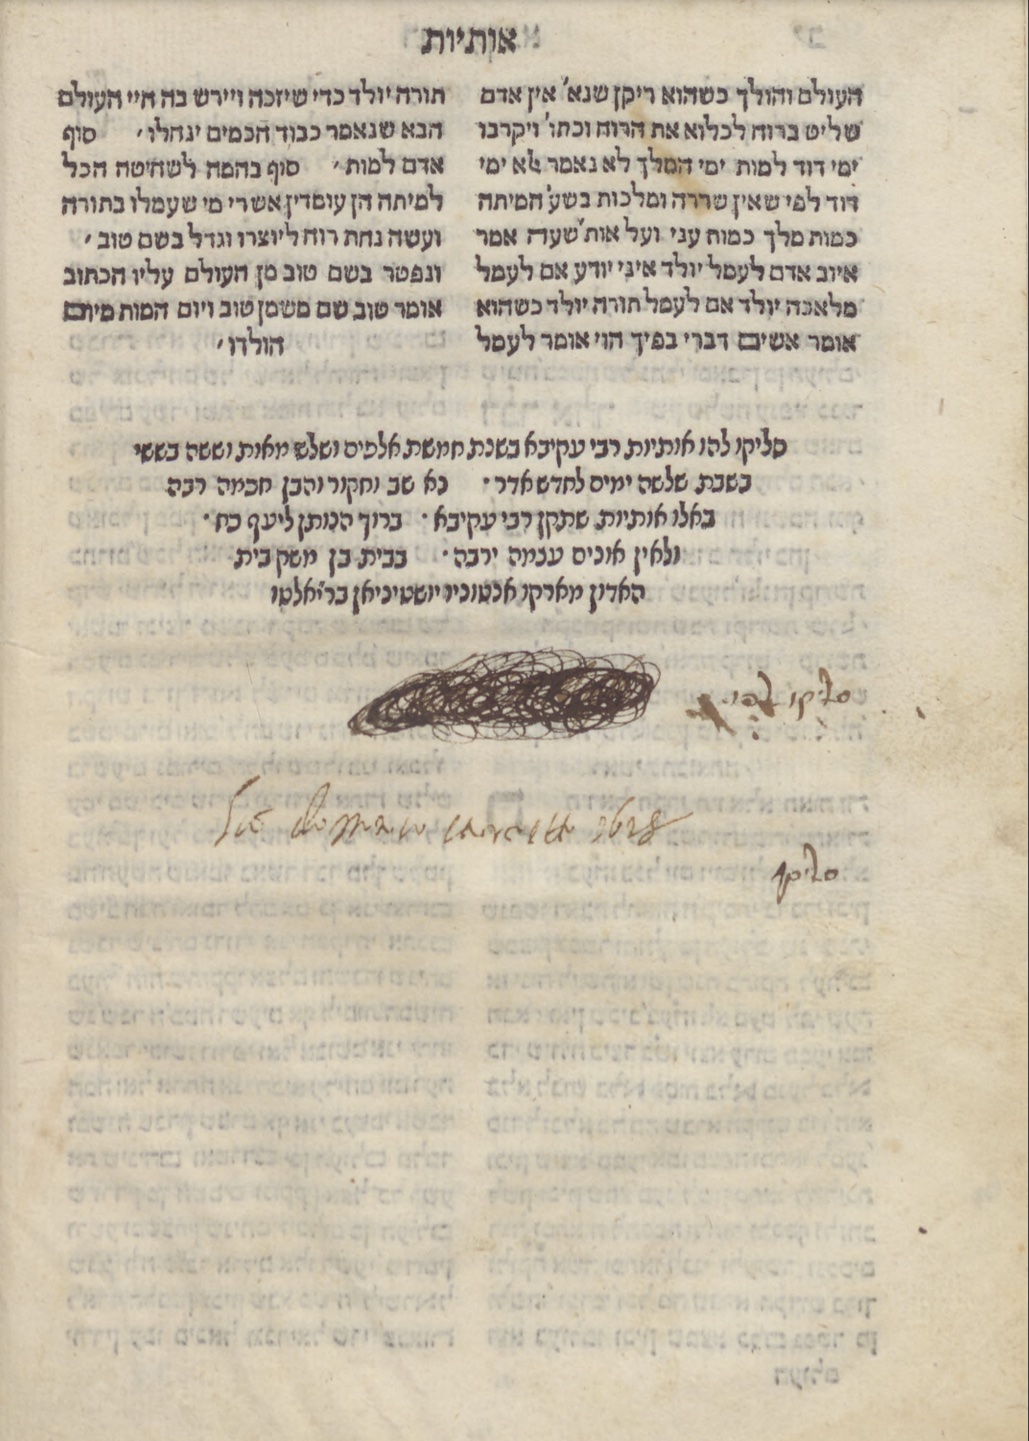 אותיות
העולם והולך כשהוא ריקן שנא' אין אדם
שליט ברוח לכלוא את הרוח וכתו' ויקרבו
ימי דוד למות ימי המלך לא נאמר אלא ימי
דוד לפי שאין שררה ומלכות בשע' המיתה
כמות מלך כמות עני ועל אות' שעה אמר
איוב אדם לעמל יולד איני יודע אם לעמל
מלאכה יולד אם לעמל תורה יולד כשהוא
אומר אשים דברי בפיך הוי אומר לעמל
תורה יולד כדי שיזכה ויירש בה חיי העולם
הבא שנאמר כבוד חכמים ינחלו׳ סוף
אדם למות׳ סוף בהמה לשחיטה הכל
למיתה הן עומדין אשרי מי שעמלו בתורה
ועשה נחת רוח ליוצרו וגדל בשם טוב׳
ונפטר בשם טוב מן העולם עליו הכתוב
אומר טוב שם משמן טוב ויום המות מיום
הולדו׳
סליקו להו אותיות רבי עקיבא בשנת חמשת אלפים ושלש מאות וששה בששי
בשבת שלשה ימים לחדש אדר· נא שב וחקור והבן חכמה רבה
באלו אותיות שתקן רבי עקיבא· ברוך הנותן ליעף כח·
ולאין אונים עצמה ירבה· בבית בן משק בית
האדון מארקו אנטוניו יושטיניאן ברואלטו
סליקו
1628
סליקו